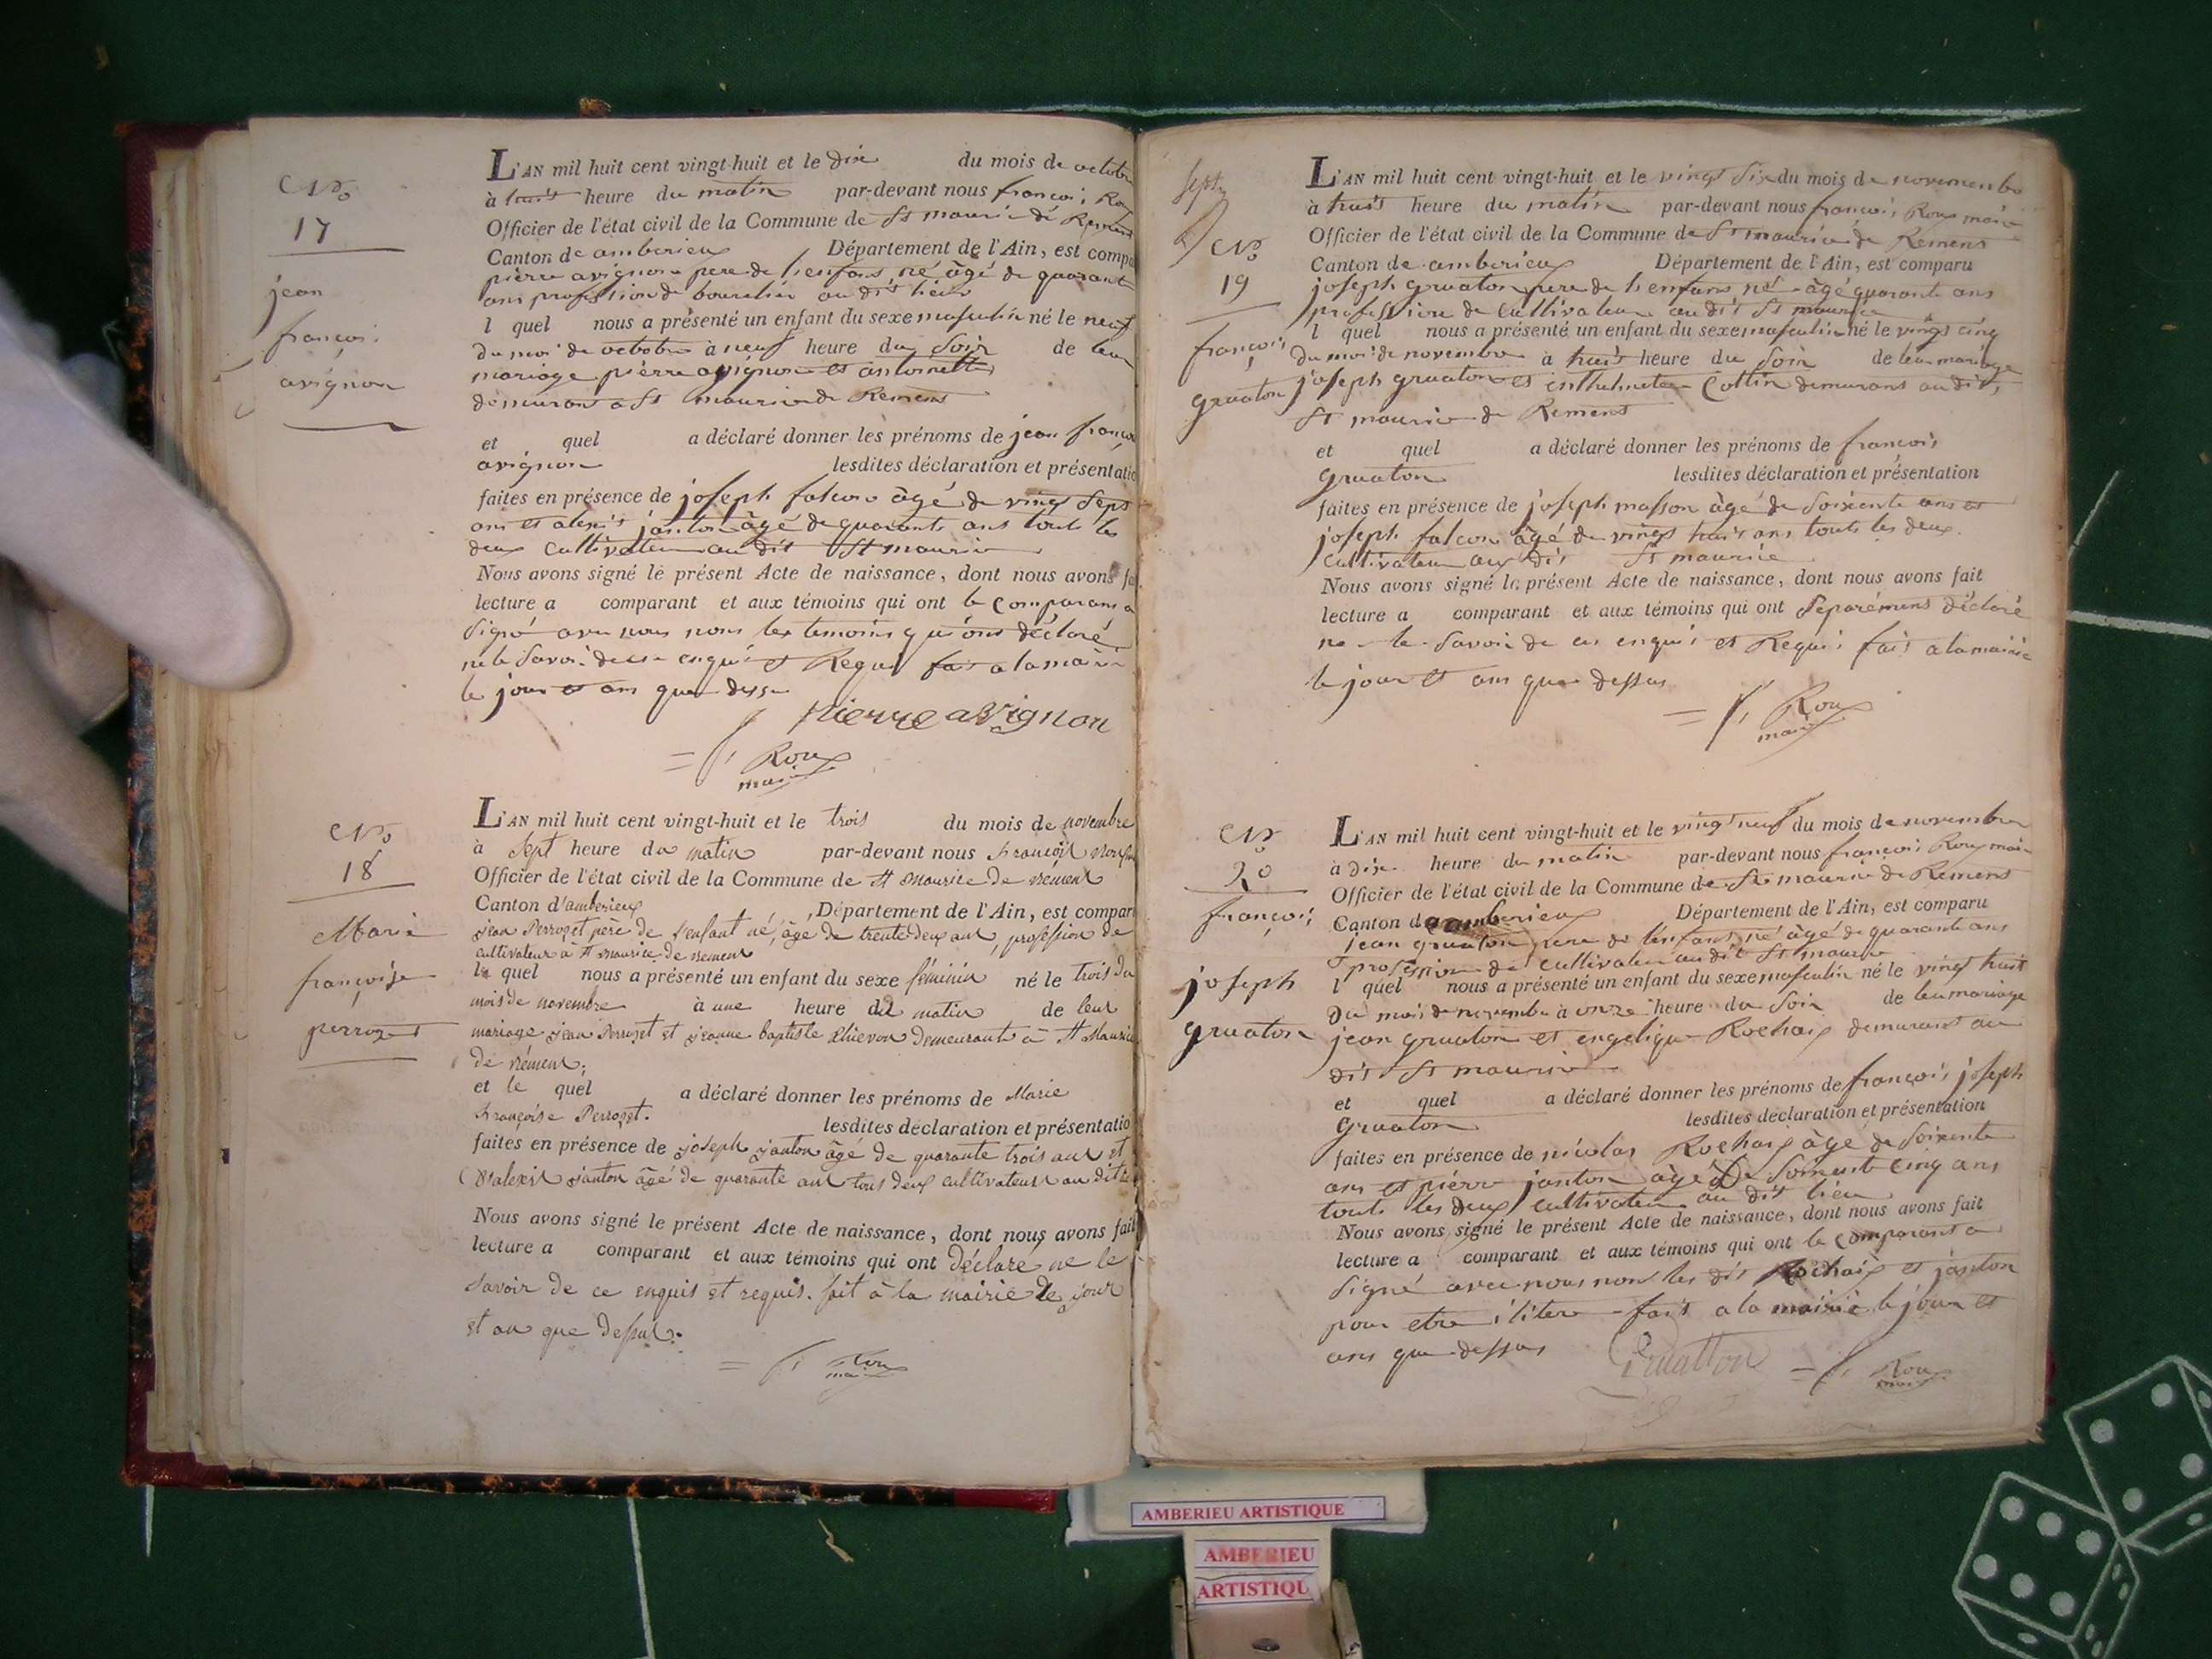 No
17
jean
françois
avignon
L'AN mil huit cent vingt-huit et le dix du mois de octobre
à huit heure du matin par-devant nous françois Roux
Officier de l'état civil de la Commune de St mauric de Remens
Canton de amberieux Département de l'Ain, est compa
pierre avignon pere de lenfans né âgé de quarante
ans profession de bourelier au dit lieu
l quel nous a présenté un enfant du sexe masculin né le neuf
du moi de octobre à neuf heure du soir de leur
mariage pierre avignon et antoinette
demurans a St mauric de Remens
et quel a déclaré donner les prénoms de jean françois
avignon lesdites déclaration et présentatio
faites en présence de joseph falcon âgé de vingt sept
ans et alexis janton âgé de quarante ans touts les
deux cultivateur au dit St mauric
Nous avons signé le présent Acte de naissance, dont nous avons fai
lecture a comparant et aux témoins qui ont le comparans a
signé avec nous nons les temoins qui ons déclaré
ne le savoir de ce enqui et Requi fait a la mairie
le jour et ans que dessu
pierre avignon
= f, Roux
maire
No
18
Marie
françoise
perrozet
L'AN mil huit cent vingt-huit et le trois du mois de novembre
à sept heure du matin par-devant nous françois
Officier de l'état civil de la Commune de St Maurice de remens
Canton d'amberieux, Département de l'Ain, est compar
jean Perrozet père de l'enfant né, âge de trente deux ans, profession de
cultivateur à St Maurice de remens
le quel nous a présenté un enfant du sexe féminin né le trois du
mois de novembre à une heure du matin de leur
mariage jean Perrozet et jeanne baptiste thievon demeurants à St Maurice
de rémens.
et le quel a déclaré donner les prénoms de Marie
françoise Perrozet. lesdites déclaration et présentatio
faites en présence de joseph janton âgé de quarante trois ans et
d'alexis janton âgé de quarante ans tous deux cultivateurs au dit
Nous avons signé le présent Acte de naissance, dont nous avons fait
lecture a comparant et aux témoins qui ont déclaré ne le
savoir de ce enquis et requis. fait à la mairie le jour
et an que dessus.
= f, Roux
maire
No
19
françois
gruaton
L'AN mil huit cent vingt-huit et le vingt six du mois de novemenbre
à huit heure du matin par-devant nous françois Roux maire
Officier de l'état civil de la Commune de St mauric de Remens
Canton de amberieux Département de l'Ain, est comparu
joseph gruaton pere de lenfans né âgé quarante ans
profession de cultivateur au dit St mauric
l quel nous a présenté un enfant du sexe masculin né le vingt cinq
du moi de novembre à huit heure du soir de leur mariage
joseph gruaton et Cottin demurans au dit
St mauric de Remens
et quel a déclaré donner les prénoms de françois
gruaton lesdites déclaration et présentation
faites en présence de joseph masson âgé de soixente ans et
joseph falcon âgé de vingt huit ans touts les deux
cultivateur aux dit St mauric
Nous avons signé le présent Acte de naissance, dont nous avons fait
lecture a comparant et aux témoins qui ont separémens déclaré
ne le savoir de ce enqui et Requi fait a la mairie
le jour et ans que dessus
= f, Roux
maire
No
20
françois
joseph
gruaton
L'AN mil huit cent vingt-huit et le vingt neuf du mois de novembre
à dix heure du matin par-devant nous françois Roux maire
Officier de l'état civil de la Commune de St mauric de Remens
Canton de amberieux Département de l'Ain, est comparu
jean gruaton pere de lenfans né âgé de quarante ans
profession de cultivateur au dit St mauric
l quel nous a présenté un enfant du sexe masculin né le vingt huit
du mois de novembre à onze heure du soir de leur mariage
jean gruaton et engelique Rochaix demurans au
dit St mauric
et quel a déclaré donner les prénoms de françois joseph
gruaton lesdites déclaration et présentation
faites en présence de nicolas Rochaix âgé de soixente
ans et pierre janton âgé De soixente cinq ans
touts les deux cultivateur au dit lieu
Nous avons signé le présent Acte de naissance, dont nous avons fait
lecture a comparant et aux témoins qui ont le comparant a
signé avec nous non les dit Rochaix et janton
pour etre iliters fait a la mairie le jour et
ans que dessus
Gruatton
= f, Roux
maire
AMBERIEU ARTISTIQUE
AMBERIEU
ARTISTIQU